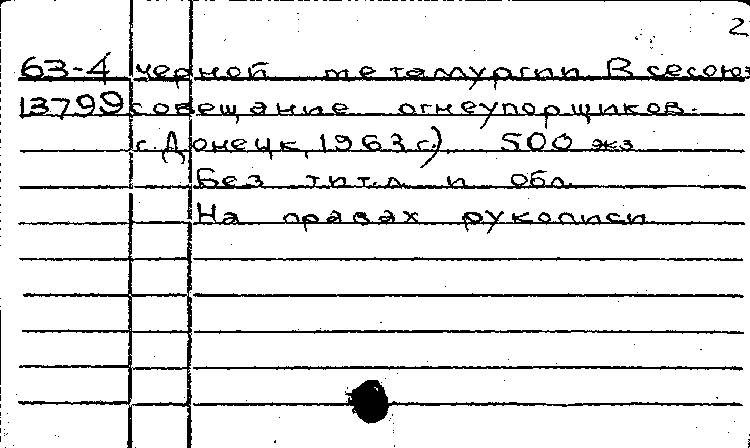 2
63-4 черной металургии Всесоюз
13799 совещание огнеупорщиков.
г. Донецк, 1963 г.). 500 экз
Без тит.л и обл.
На правах рукописи